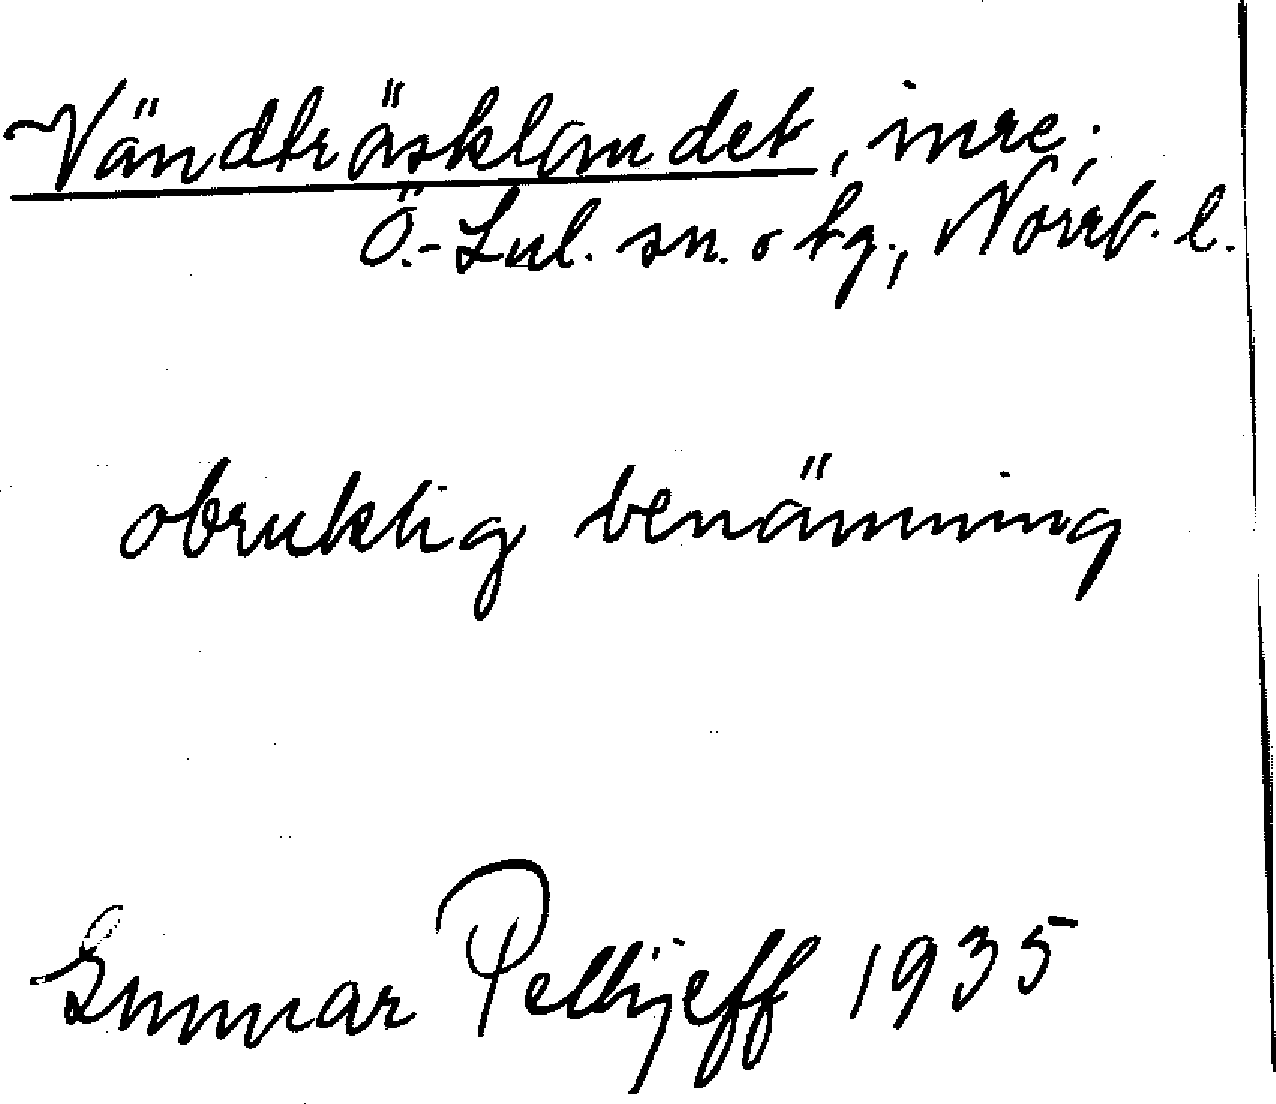 Vändträsklandet, inre;
Ö.-Lul. sn. o tg., Norrb. l.
obruklig benämning
Gunnar Pellijeff 1935